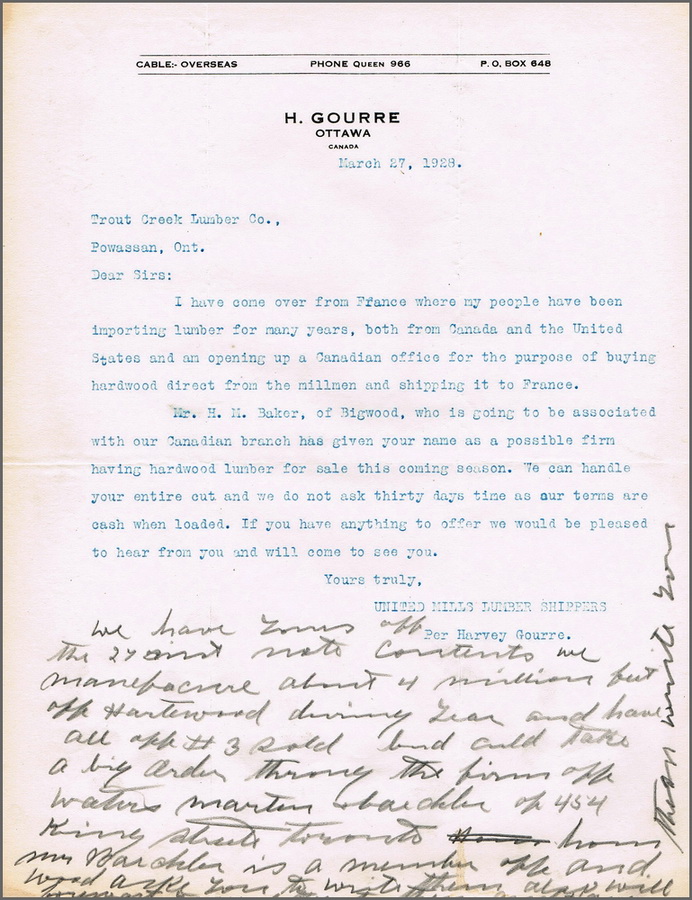 CABLE:- OVERSEAS PHONE QUEEN 966 P. O. BOX 648
H. GOURRE
OTTAWA
CANADA
March 27, 1928.
Trout Creek Lumber Co.,
Powassan, Ont.
Dear Sirs:
I have come over from France where my people have been
importing lumber for many years, both from Canada and the United
States and am opening up a Canadian office for the purpose of buying
hardwood direct from the millmen and shipping it to France.
Mr. H. M. Baker, of Bigwood, who is going to be associated
with our Canadian branch has given your name as a possible firm
having hardwood lumber for sale this coming season. We can handle
your entire cut and we do not ask thirty days time as our terms are
cash when loaded. If you have anything to offer we would be pleased
to hear from you and will come to see you.
Yours truly,
UNITED MILLS LUMBER SHIPPERS
Per Harvey Gourre.
we have yours off
the 27 inst note contents we
manefacure about 4 million feet
off Hartewood during year and have
all off # 3 sold but could take
a big order throug the firm off
Waters marten + baechler of 454
King streete toronto hom
mr Baechler is a member off and
wood aske you to write them also will
write you